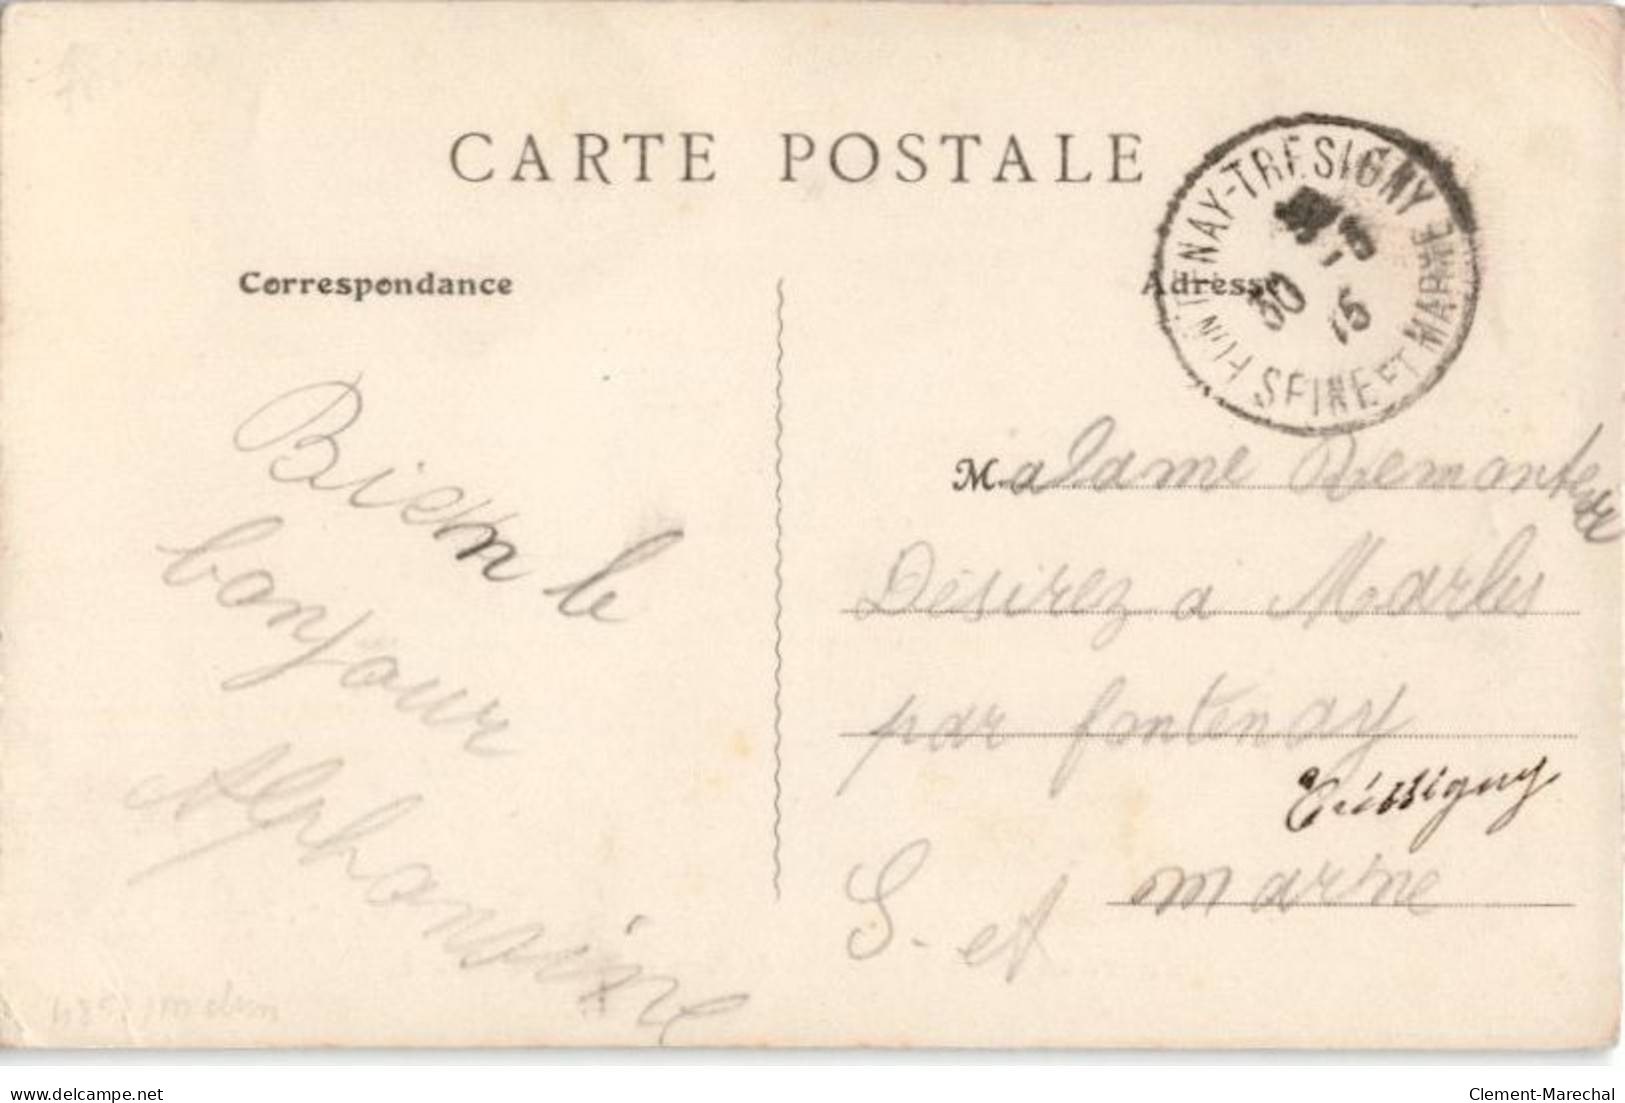 CARTE POSTALE
Correspondance
Adresse
FONTENAY-TRESIGNY
SEINE ET MARNE
30
15
Bien le
bonjour
Alphonsine
Madame Demonte
Désirez a Marles
par fontenay
Trèssigny
S. et marne
delcampe.net
Clement-Marechal